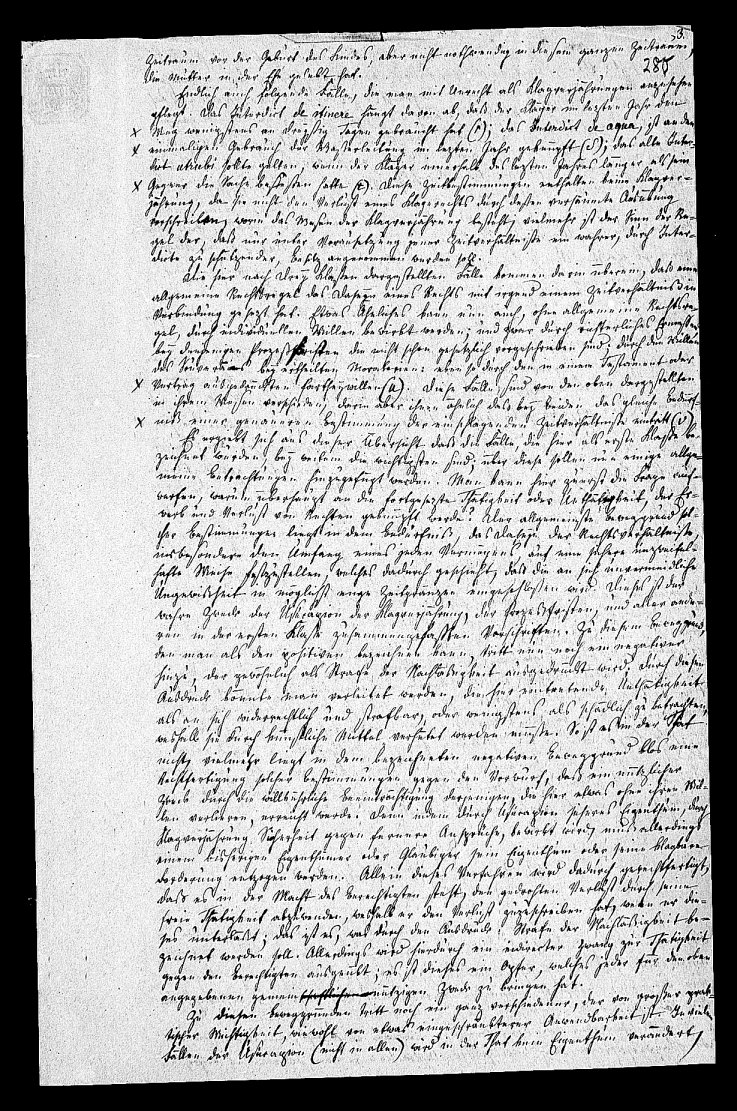 3.
285
Zeitraum vor der Geburt des Kindes, aber nicht nothwendig in diesem ganzen Zeitraum,
die Mutter in der Ehe gelebt hat.
Endlich auch folgende Fälle, die man mit Unrecht als Klagverjährungen anzusehen
pflegt. Das Interdict de itinere hängt davon ab, daß der Kläger im letzten Jahr den
x Weg wenigstens an dreyßig Tagen gebraucht hat (r); das Interdict de aqua, ist an den
x einmaligen Gebrauch der Wasserleitung im letzten Jahr geknüpft (s); das alte Inter-
dict utrubi sollte gelten, wenn der Kläger innerhalb des letzten Jahres länger als sein
x Gegner die Sache besessen hatte (t). Diese Zeitbestimmungen enthalten keine Klagver-
jährung, da sie nicht den Verlust eines Klagrechts durch dessen versäumte Ausübung
vorschreiben, worin das Wesen der Klagverjährung besteht, vielmehr ist der Sinn der Re-
gel der, daß nur unter Voraussetzung jener Zeitverhältnisse ein wahrer, durch Inter-
dicte zu schützender, Besitz angenommen werden soll.
Die hier nach drey Klassen dargestellten Fälle kommen darin überein, daß eine
allgemeine Rechtsregel das Daseyn eines Rechts mit irgend einem Zeitverhältniß in
Verbindung gesetzt hat. Etwas Ähnliches kann nun auch, ohne allgemeine Rechtsre-
gel, durch individuellen Willen bewirkt werden; und zwar durch richterliches Ermessen
bey denjenigen Prozeßfristen die nicht schon gesetzlich vorgeschrieben sind; durch den Willen
des Souverains bey ertheilten Moratorien: eben so durch den in einem Testament oder
x Vertrag ausgedrückten Partheywillen (u). Diese Fälle sind von den oben dargestellten
in ihrem Wesen verschieden, darin aber ihnen ähnlich daß bey beiden das gleiche Bedürf-
x niß einer genaueren Bestimmung der einschlagenden Zeitverhältnisse eintritt (v)
Es ergiebt sich aus dieser Übersicht daß die Fälle, die hier als erste Klasse be-
zeichnet wurden, bey weitem die wichtigsten sind; über diese sollen nun einige allge-
meine Betrachtungen hinzugefügt werden. Man kann hier zuerst die Frage auf-
werfen, warum überhaupt an die fortgesetzte Thätigkeit oder Unthätigkeit, der Er-
werb und Verlust von Rechten geknüpft werde? Der allgemeinste Beweggrund sol-
cher Bestimmungen liegt in dem Bedürfniß, das Daseyn der Rechtsverhältnisse,
insbesondere den Umfang eines jeden Vermögens auf eine sichere unzweifel-
hafte Weise festzustellen, welches dadurch geschieht, daß die an sich unvermeidliche
Ungewißheit in möglichst enge Zeitgränzen eingeschlossen wird. Dieses ist der
wahre Zweck der Usucapion der Klagverjährung, der Prozeßfristen, und aller ande-
ren in der ersten Klasse zusammengefaßten Vorschriften. Zu diesem Beweggrund,
den man als den positiven bezeichnen kann, tritt nun noch ein negativer
hinzu, der gewöhnlich als Strafe der Nachlässigkeit ausgedrückt wird. Durch diesen
Ausdruck könnte man verleitet werden, die hier eintretende Unthätigkeit
als an sich widerrechtlich und strafbar, oder wenigstens als schädlich zu betrachten,
weshalb sie durch künstliche Mittel verhütet werden müßte. So ist es in der That
nicht, vielmehr liegt in dem bezeichneten negativen Beweggrund blos eine
Rechtfertigung solcher Bestimmungen gegen den Vorwurf, daß ein nützlicher
Zweck durch die willkührliche Beeinträchtigung derjenigen, die hier etwas ohne ihren Wil-
len verlieren, erreicht werde. Denn indem durch Usucapion sicheres Eigenthum, durch
Klagverjährung Sicherheit gegen fernere Ansprüche, bewirkt wird, muß allerdings
einem bisherigen Eigenthümer oder Gläubiger sein Eigenthum oder seine klagbare
Forderung entzogen werden. Allein dieses Verfahren wird dadurch gerechtfertigt,
daß es in der Macht des Berechtigten steht, den gedrohten Verlust durch seine
freie Thätigkeit abzuwenden, weshalb er den Verlust sich zuzuschreiben hat, wenn er die-
ses unterläßt; das ist es, was durch den Ausdruck: Strafe der Nachlässigkeit be-
zeichnet werden soll. Allerdings wird hierdurch ein indirecter Zwang zur Thätigkeit
gegen den Berechtigten ausgeübt; es ist dieses ein Opfer, welches jeder für den oben
angegebenen gemeinnützigen Zweck zu bringen hat.
Zu diesen Beweggründen tritt noch ein ganz verschiedener, der von großer prak-
tischer Wichtigkeit, wiewohl von etwas eingeschränkterer Anwendbarkeit ist. In vielen
Fällen der Usucapion (nicht in allen) wird in der That kein Eigenthum verändert,